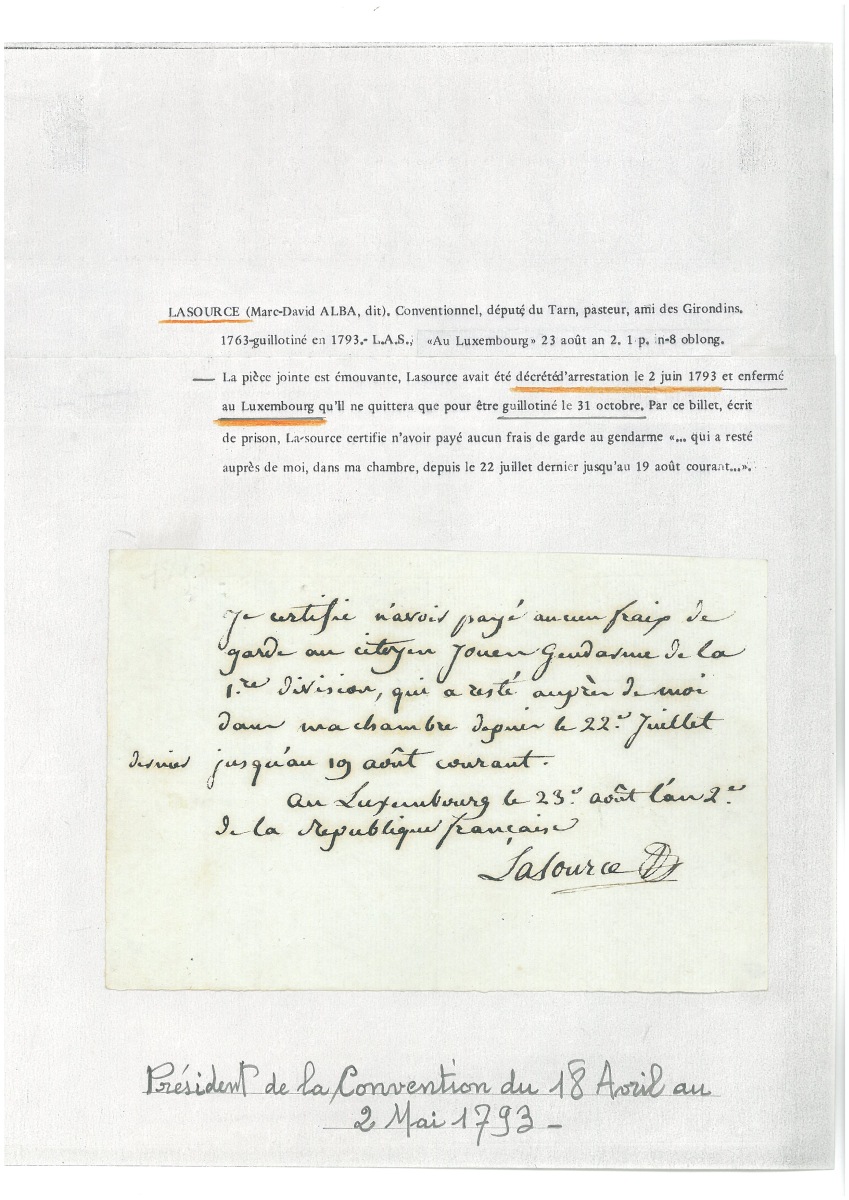 LASOURCE (Marc-David ALBA, dit). Conventionnel, député du Tarn, pasteur, ami des Girondins.
1763-guillotiné en 1793.- L.A.S., «Au Luxembourg» 23 août an 2. 1 p. in-8 oblong.
— La pièce jointe est émouvante, Lasource avait été décrétéd'arrestation le 2 juin 1793 et enfermé
au Luxembourg qu'il ne quittera que pour être guillotiné le 31 octobre. Par ce billet, écrit
de prison, La-source certifie n'avoir payé aucun frais de garde au gendarme «... qui a resté
auprès de moi, dans ma chambre, depuis le 22 juillet dernier jusqu'au 19 août courant...».
Je certifie n'avoir payé aucun fraix de
garde au citoyen Jouen Gendarme de la
1.re division, qui a resté auprès de moi
dans ma chambre depuis le 22.e Juillet
dernier jusqu'au 19 août courant.
au Luxembourg le 23.e août l'an 2.e
de la République française
Lasource
Président de la Convention du 18 Avril au
2 Mai 1793 –